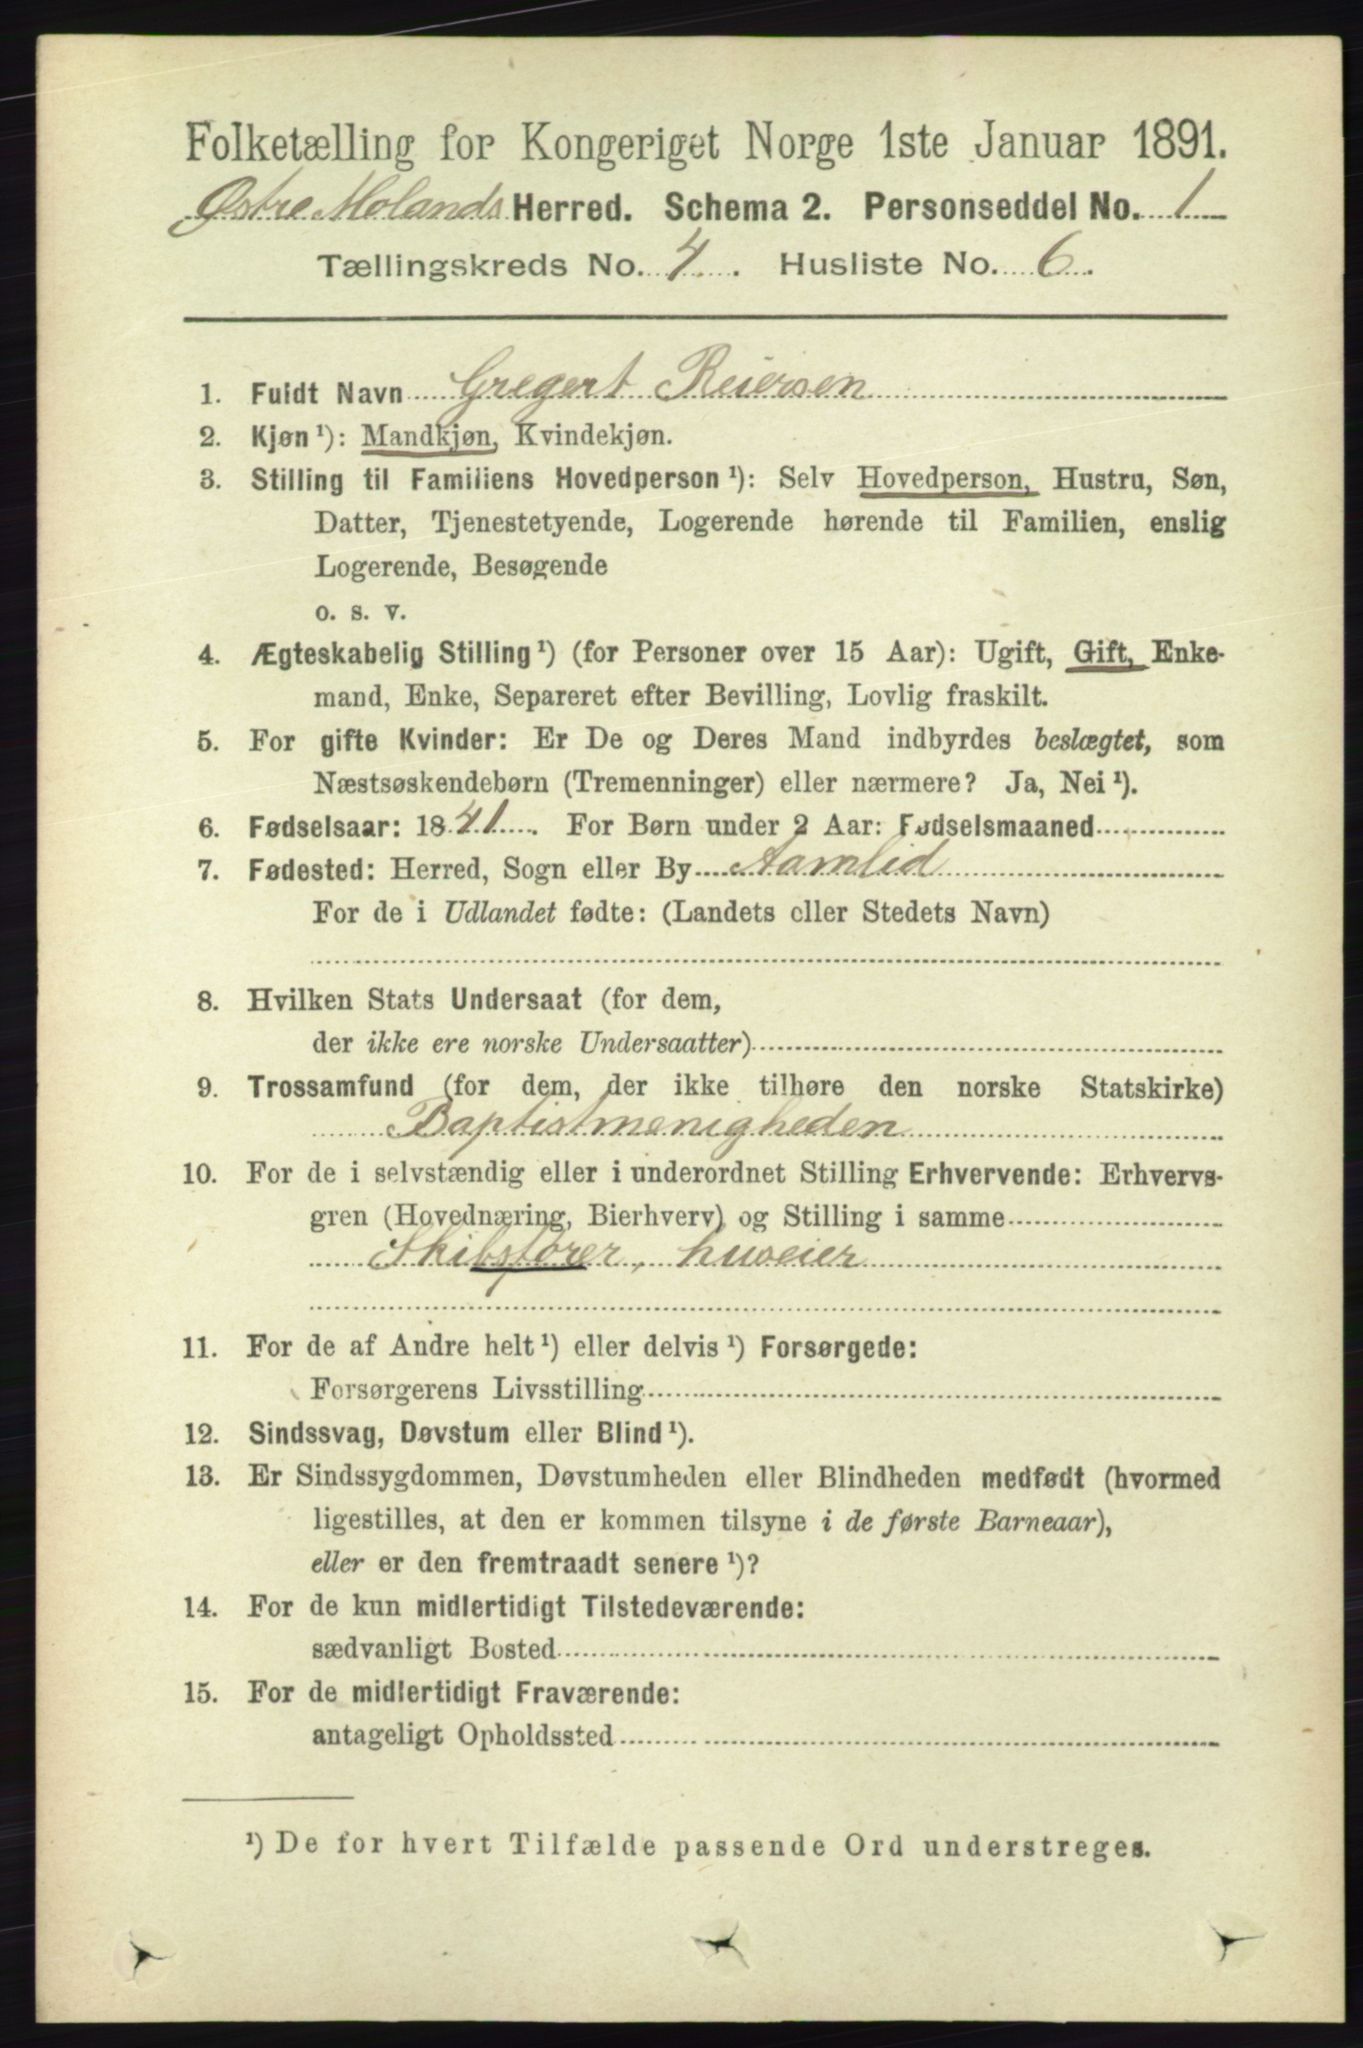 Folketælling for Kongeriget Norge 1ste Januar 1891.
Østre Molands Herred. Schema 2. Personseddel No. 1
Tællingskreds No. 4. Husliste No. 6.
1. Fuldt Navn Gregert Reiersen
2. Kjøn ¹): Mandkjøn, Kvindekjøn.
3. Stilling til Familiens Hovedperson ¹): Selv Hovedperson, Hustru, Søn,
Datter, Tjenestetyende, Logerende hørende til Familien, enslig
Logerende, Besøgende
o. s. v.
4. Ægteskabelig Stilling ¹) (for Personer over 15 Aar): Ugift, Gift, Enke-
mand, Enke, Separeret efter Bevilling, Lovlig fraskilt.
5. For gifte Kvinder: Er De og Deres Mand indbyrdes beslægtet, som
Næstsøskendebørn (Tremenninger) eller nærmere? Ja, Nei ¹).
6. Fødselsaar: 1841. For Børn under 2 Aar: Fødselsmaaned
7. Fødested: Herred, Sogn eller By Aamlid
For de i Udlandet fødte: (Landets eller Stedets Navn)
8. Hvilken Stats Undersaat (for dem,
der ikke ere norske Undersaatter)
9. Trossamfund (for dem, der ikke tilhøre den norske Statskirke)
Baptistmenigheden
10. For de i selvstændig eller i underordnet Stilling Erhvervende: Erhvervs-
gren (Hovednæring, Bierhverv) og Stilling i samme
Skibsfører, huseier
11. For de af Andre helt ¹) eller delvis ¹) Forsørgede:
Forsørgerens Livsstilling
12. Sindssvag, Døvstum eller Blind ¹).
13. Er Sindssygdommen, Døvstumheden eller Blindheden medfødt (hvormed
ligestilles, at den er kommen tilsyne i de første Barneaar),
eller er den fremtraadt senere ¹)?
14. For de kun midlertidigt Tilstedeværende:
sædvanligt Bosted
15. For de midlertidigt Fraværende:
antageligt Opholdssted
¹) De for hvert Tilfælde passende Ord understreges.